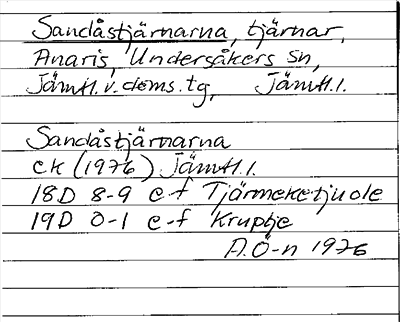 Sandåstjärnarna, tjärnar,
Anaris, Undersåkers sn,
Jämtl. v. doms. tg, Jämtl. l.
Sandåstjärnarna
ek (1976) Jämtl. l.
18D 8-9 e-f Tjärmeketjuole
19D 0-1 e-f Kruptje
A.Ö-n 1976